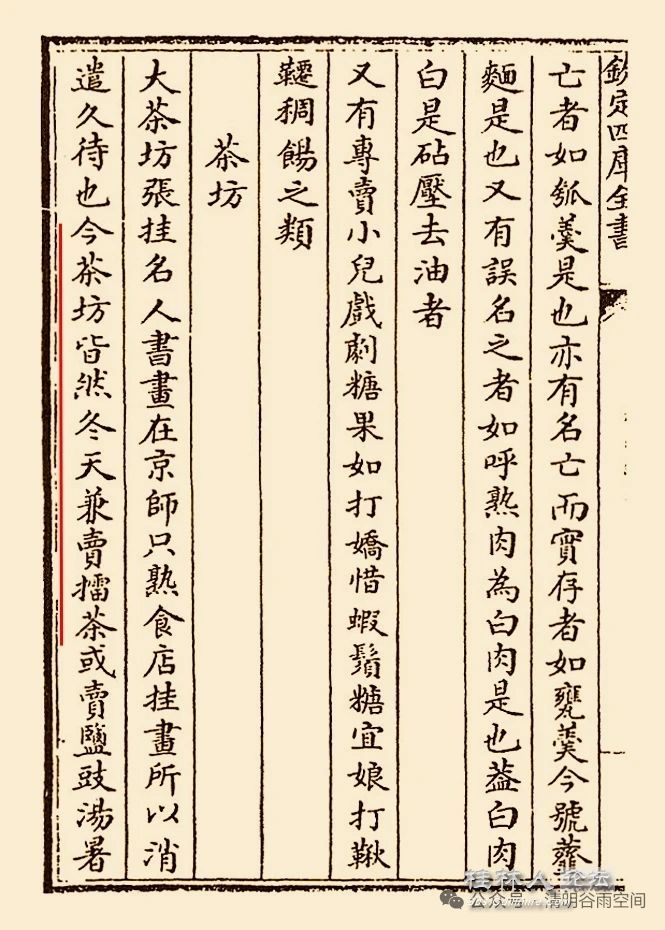 欽定四庫全書
亡者如瓠羹是也亦有名亡而實存者如甕羹今號虀
麵是也又有誤名之者如呼熟肉為白肉是也蓋白肉
白是砧壓去油者
又有專賣小兒戲劇糖果如打嬌惜蝦鬚糖宜娘打鞦
韆稠餳之類
茶坊
大茶坊張挂名人書畫在京師只熟食店挂畫所以消
遣久待也今茶坊皆然冬天兼賣擂茶或賣鹽豉湯暑
桂林人论坛
公众号 清明谷雨空间